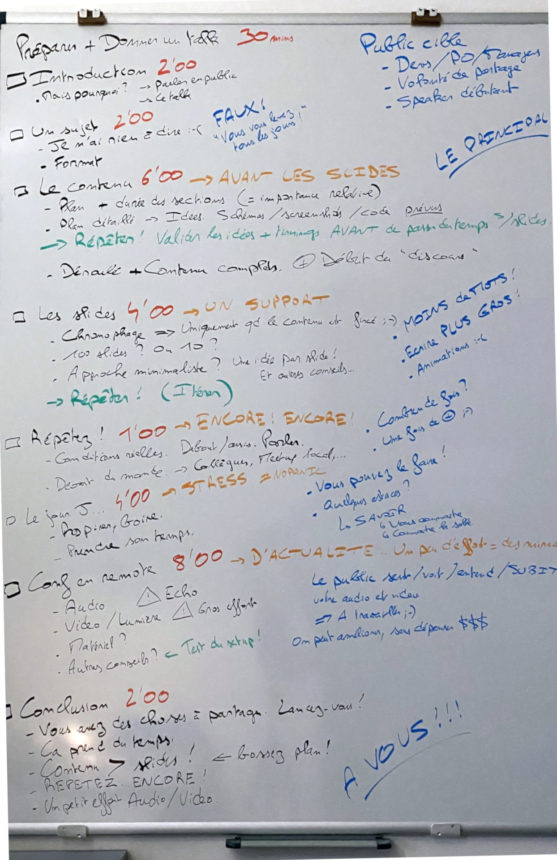 Préparer + Donner un talk 30 mins
Public cible
- Devs/PO/Managers
- Volonté de partage
- Speaker débutant
Introduction 2'00
. Mais pourquoi? → Parler en public
→ Ce talk
Un sujet 2'00
- Je n'ai rien à dire :-(
FAUX!
"Vous vous levez tous les jours!"
- Format
LE PRINCIPAL
Le contenu 6'00 → AVANT LES SLIDES
- Plan + durée des sections (= importance relative)
- Plan détaillé → Idées Schémas/screenshots/code prévus
→ Répéter! Valider les idées + timings AVANT de passer du temps s/slides.
- Déroulé + Contenu complets. ⊕ Début du "discours"
Les slides 4'00 → UN SUPPORT
. Chronophage ⇒ Uniquement qd le contenu est fixé ;-)
. 100 slides? Ou 10?
. Approche minimaliste? Une idée par slide!
Et autres conseils...
→ Répéter! (Itérer)
. MOINS de MOTS!
. Ecrire PLUS GROS!
. Animations :-(
Répétez! 1'00 → ENCORE! ENCORE!
. Conditions réelles. Debout/assis. Parler.
. Devant du monde. → Collègues, Meetup local,...
. Combien de fois?
. Une fois de ⊕ ;-)
Le jour J... 4'00 → STRESS = NO PANIC
- Respirer, boire.
- Prendre son temps.
. Vous pouvez le faire!
. Quelques astuces?
↳ SAVOIR
↳ Vous connaître
↳ Connaître la salle
Conf en remote 8'00 → D'ACTUALITE. Un peu d'effort = des mines
- Audio ⚠ Echo
- Video/Lumière ⚠ Gros efforts
. Matériel?
. Autres conseils? ← Test du setup!
Le public sent/voit/entend/SUBIT
votre audio et video
⇒ A travailler ;-)
On peut améliorer, sans dépenser $$$
Conclusion 2'00
- Vous avez des choses à partager. Lancez-vous!
- Ca prend du temps.
- Contenu > slides! ← bossez plan!
- REPETEZ ENCORE!
- Un petit effort Audio/Video
A VOUS!!!